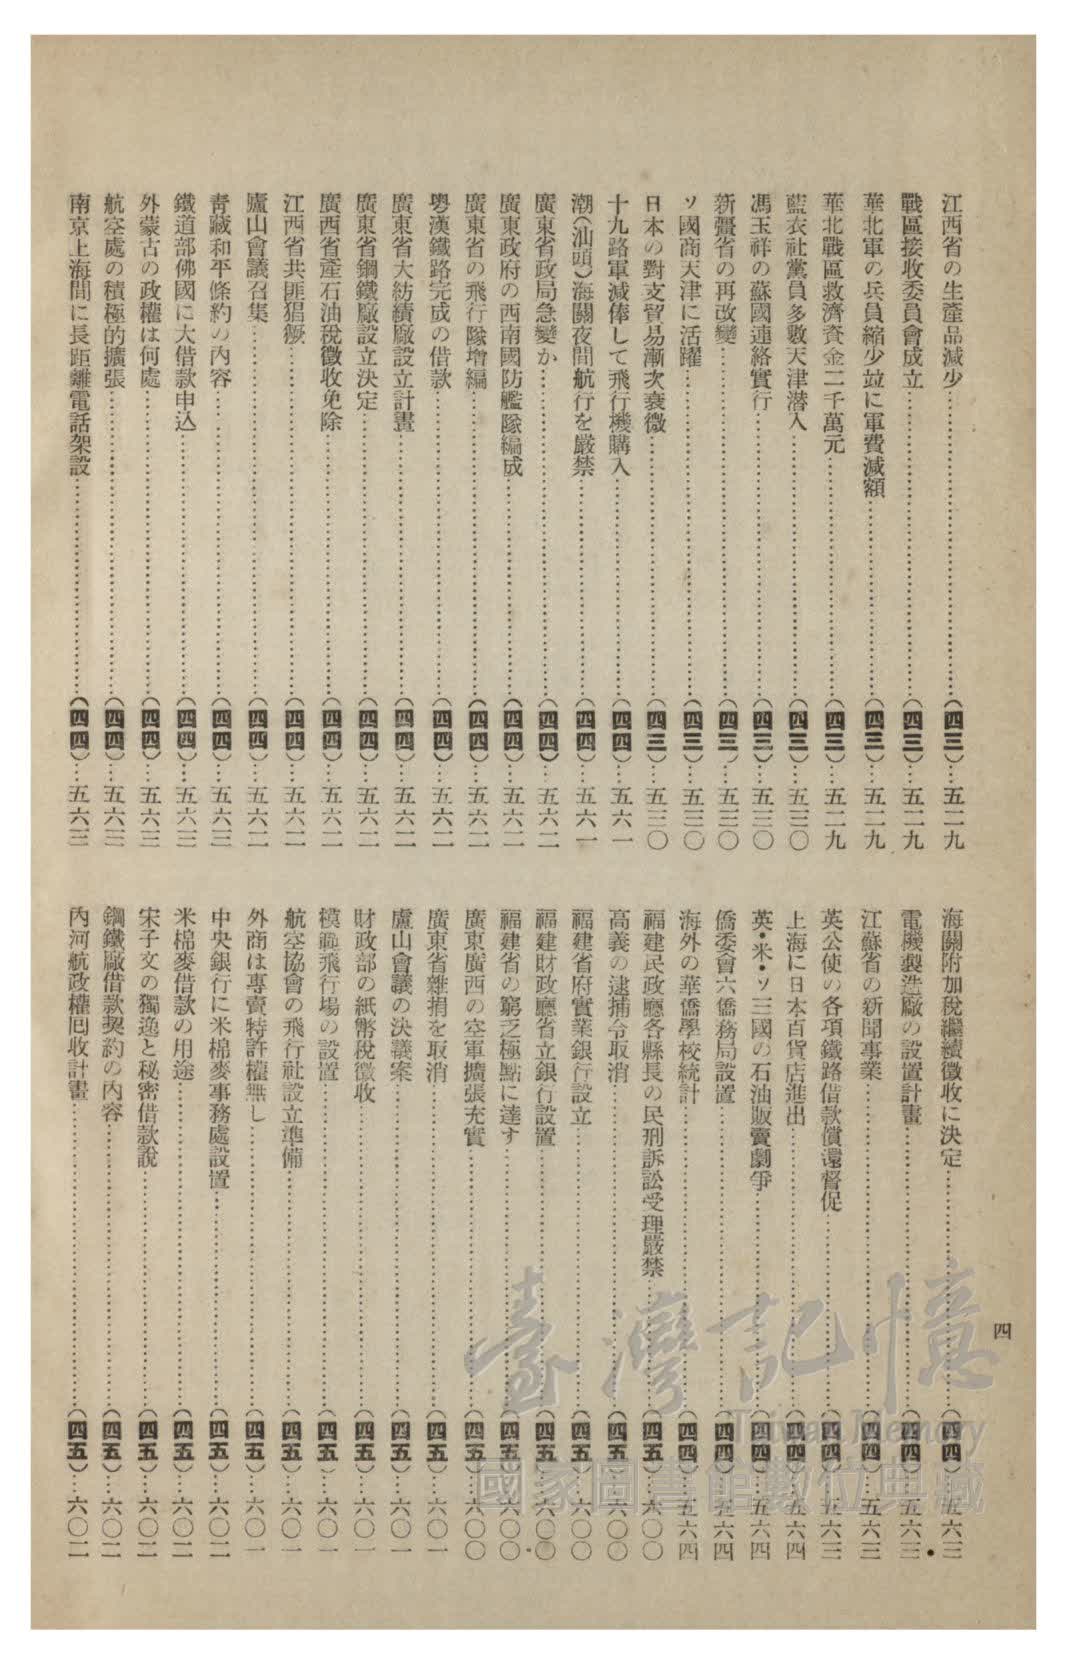 四
江西省の生產品減少……(四三)…五二九
戰區接收委員會成立……(四三)…五二九
華北軍の兵員縮少竝に軍費減額……(四三)…五二九
華北戰區救濟資金二千萬元……(四三)…五二九
藍衣社黨員多數天津潜入……(四三)…五三〇
馮玉祥の蘇國連絡實行……(四三)…五三〇
新疆省の再改變……(四三)…五三〇
ソ國商天津に活躍……(四三)…五三〇
日本の對支貿易漸次衰微……(四三)…五三〇
十九路軍減俸して飛行機購入……(四四)…五六一
潮(汕頭)海關夜間航行を嚴禁……(四四)…五六一
廣東省政局急變か……(四四)…五六二
廣東政府の西南國防艦隊編成……(四四)…五六二
廣東省の飛行隊增編……(四四)…五六二
粤漢鐵路完成の借款……(四四)…五六二
廣東省大紡績廠設立計畫……(四四)…五六二
廣東省鋼鐵廠設立決定……(四四)…五六二
廣西省產石油稅徵收免除……(四四)…五六二
江西省共匪猖獗……(四四)…五六二
廬山會議召集……(四四)…五六二
靑藏和平條約の內容……(四四)…五六三
鐵道部佛國に大借款申込……(四四)…五六三
外蒙古の政權は何處……(四四)…五六三
航空處の積極的擴張……(四四)…五六三
南京上海間に長距離電話架設……(四四)…五六三
海關附加稅繼續徵收に決定……(四四)…五六三
電機製造廠の設置計畫……(四四)…五六三
江蘇省の新聞事業……(四四)…五六三
英公使の各項鐵路借款償還督促……(四四)…五六三
上海に日本百貨店進出……(四四)…五六四
英・米・ソ三國の石油販賣劇爭……(四四)…五六四
僑委會六僑務局設置……(四四)…五六四
海外の華僑學校統計……(四四)…五六四
福建民政廳各縣長の民刑訴訟受理嚴禁……(四五)…六〇〇
高義の逮捕令取消……(四五)…六〇〇
福建省府實業銀行設立……(四五)…六〇〇
福建財政廳省立銀行設置……(四五)…六〇〇
福建省の窮乏極點に達す……(四五)…六〇〇
廣東廣西の空軍擴張充實……(四五)…六〇〇
廣東省雜捐を取消……(四五)…六〇一
廬山會議の決議案……(四五)…六〇一
財政部の紙幣稅徵收……(四五)…六〇一
模範飛行場の設置……(四五)…六〇一
航空協會の飛行社設立準備……(四五)…六〇一
外商は專賣特許權無し……(四五)…六〇一
中央銀行に米棉麥事務處設置……(四五)…六〇二
米棉麥借款の用途……(四五)…六〇二
宋子文の獨逸と秘密借款說……(四五)…六〇二
鋼鐵廠借款契約の內容……(四五)…六〇二
內河航政權囘收計畫……(四五)…六〇二
臺灣記憶
Taiwan Memory
國家圖書館數位典藏